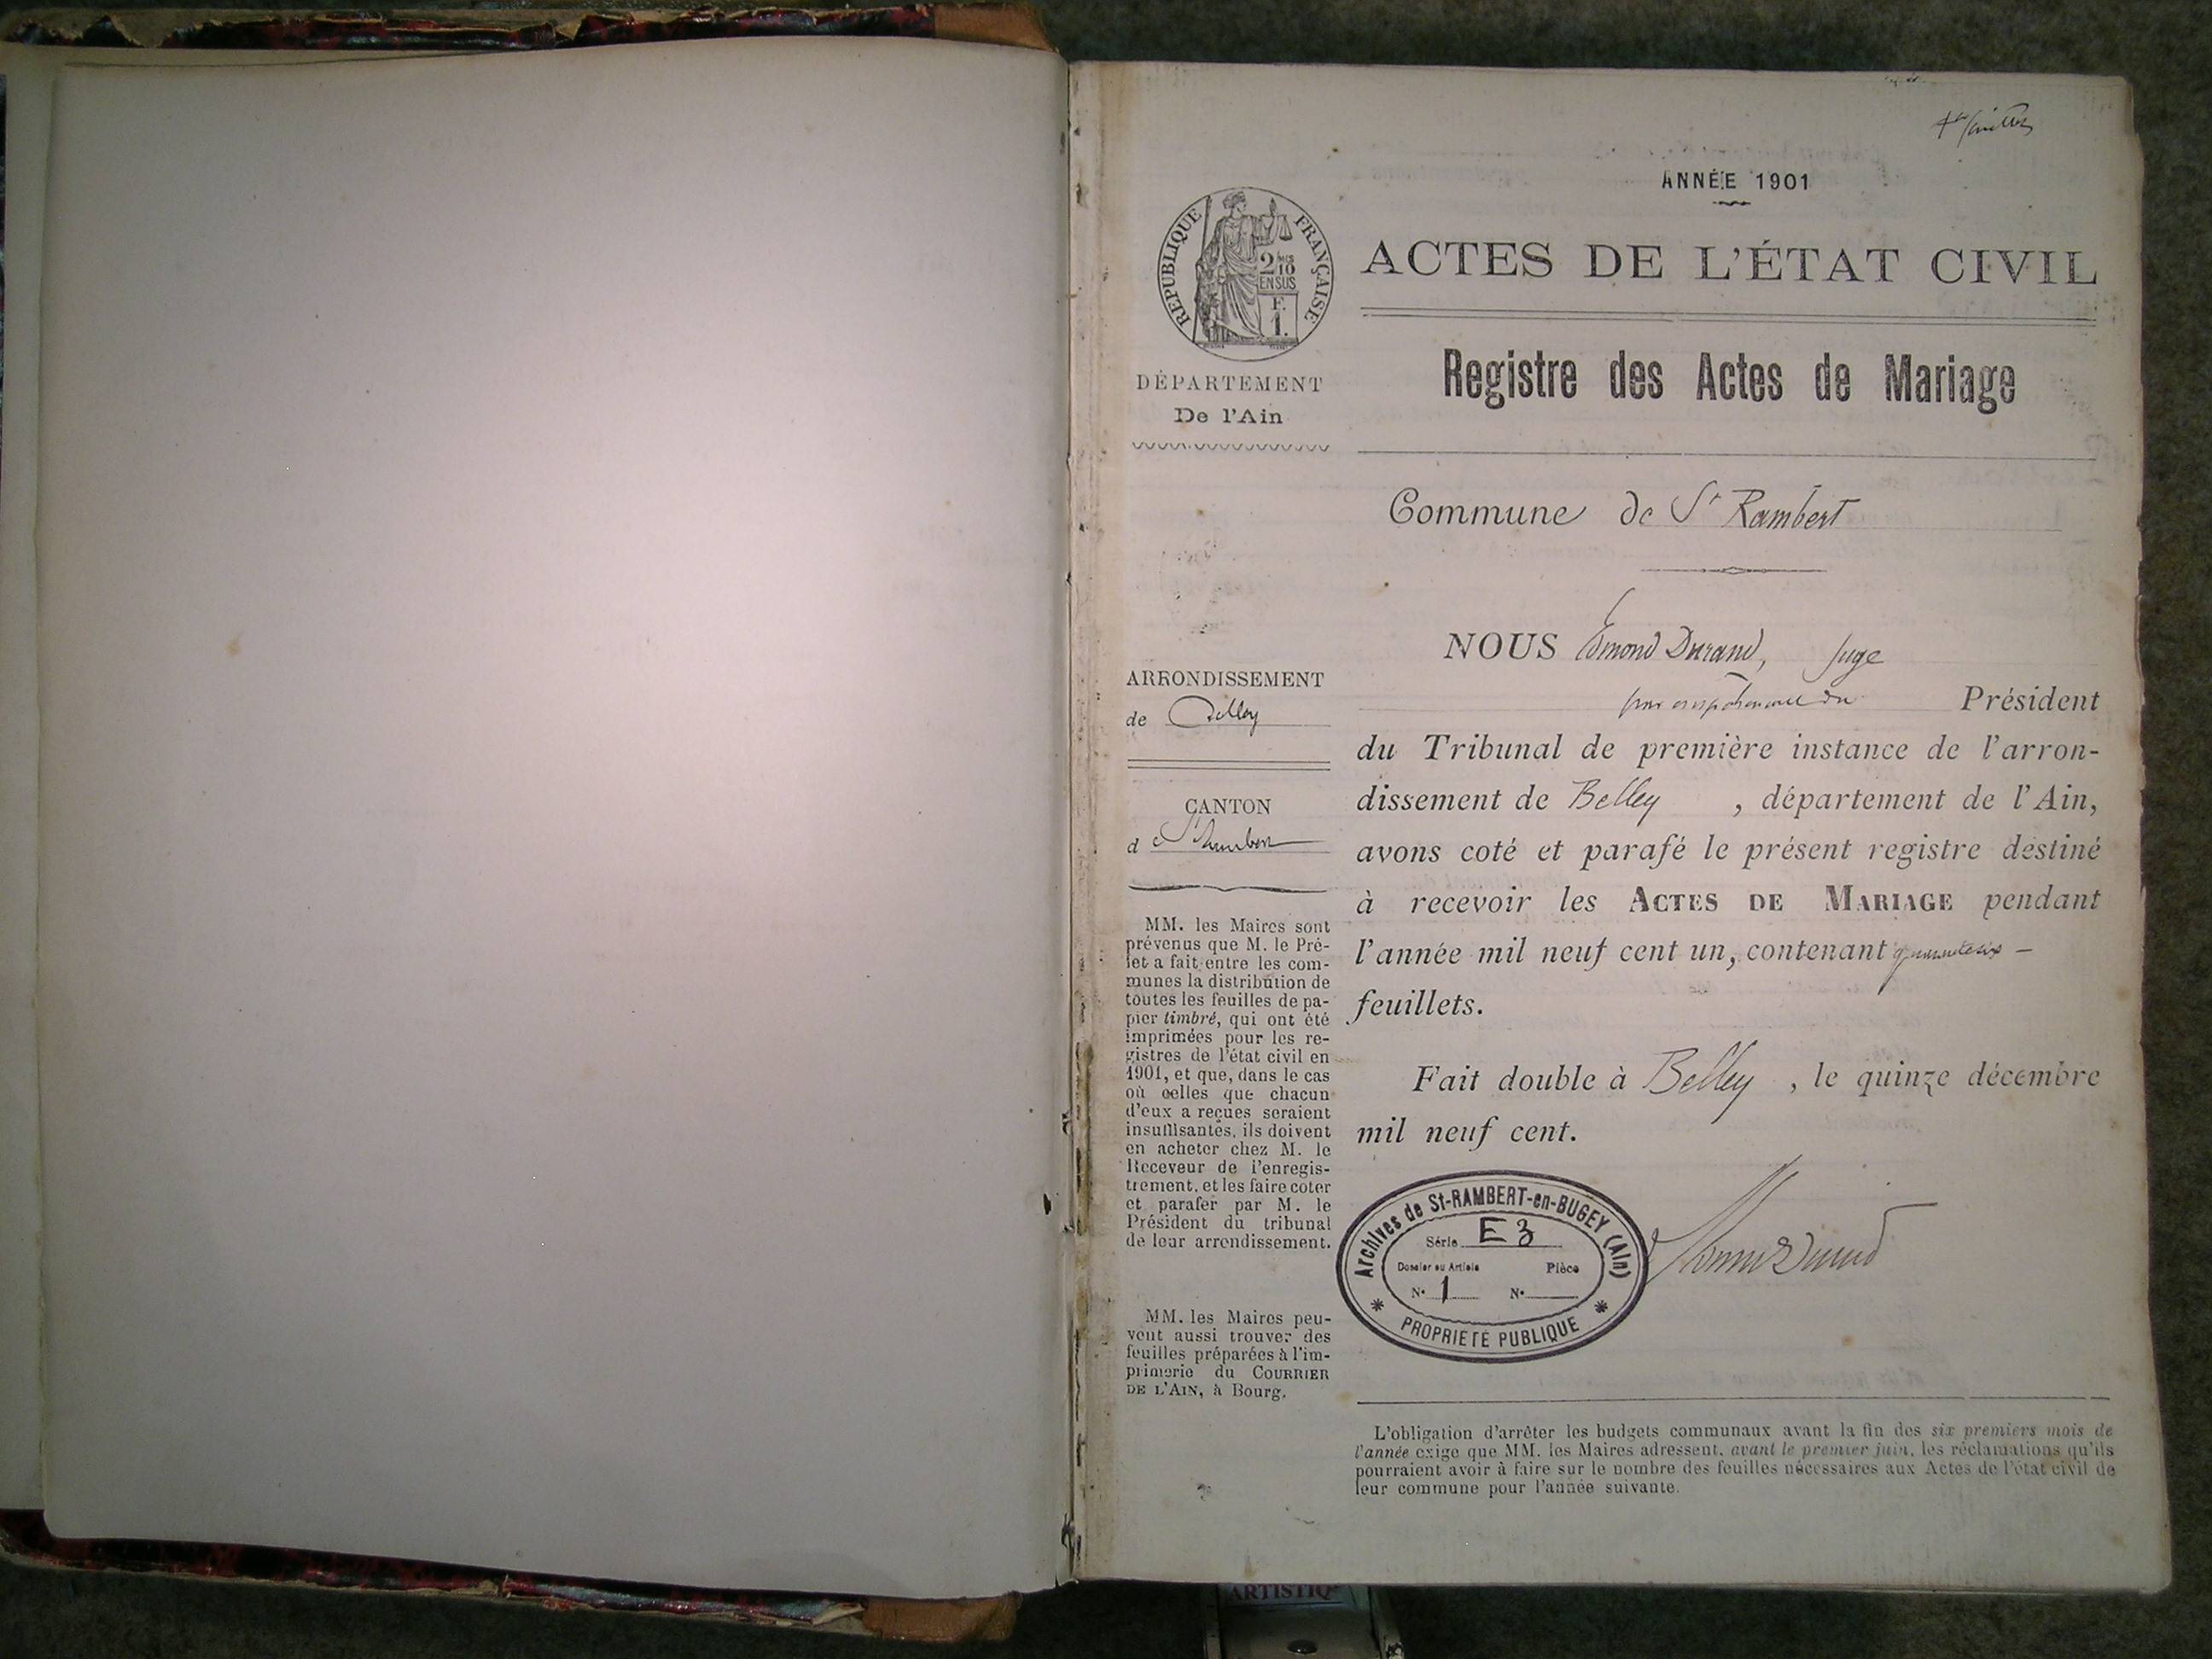 1er feuillet
ANNÉE 1901
ACTES DE L'ÉTAT CIVIL
RÉPUBLIQUE FRANÇAISE
2/10
EN SUS
F.
1.
DÉPARTEMENT
De l'Ain
Registre des Actes de Mariage
Commune de St Rambert
ARRONDISSEMENT
de Belley
CANTON
de St Rambert
MM. les Maires sont
prévenus que M. le Pré-
fet a fait entre les com-
munes la distribution de
toutes les feuilles de pa-
pier timbré, qui ont été
imprimées pour les re-
gistres de l'état civil en
1901, et que, dans le cas
où celles que chacun
d'eux a reçues seraient
insuffisantes, ils doivent
en acheter chez M. le
Receveur de l'enregis-
trement, et les faire coter
et parafer par M. le
Président du tribunal
de leur arrondissement.
MM. les Maires peu-
vent aussi trouver des
feuilles préparées à l'im-
primerie du COURRIER
DE L'AIN, à Bourg.
NOUS Edmond Durand, Juge
pour empêchement du Président
du Tribunal de première instance de l'arron-
dissement de Belley , département de l'Ain,
avons coté et parafé le présent registre destiné
à recevoir les ACTES DE MARIAGE pendant
l'année mil neuf cent un, contenant
feuillets.
Fait double à Belley , le quinze décembre
mil neuf cent.
Archives de St-RAMBERT-en-BUGEY (Ain)
Série E3
Dossier ou Article Pièce
N° 1 N°
PROPRIÉTÉ PUBLIQUE
Edmond Durand
L'obligation d'arrêter les budgets communaux avant la fin des six premiers mois de
l'année exige que MM. les Maires adressent, avant le premier juin, les réclamations qu'ils
pourraient avoir à faire sur le nombre des feuilles nécessaires aux Actes de l'état civil de
leur commune pour l'année suivante.
ARTISTIQ